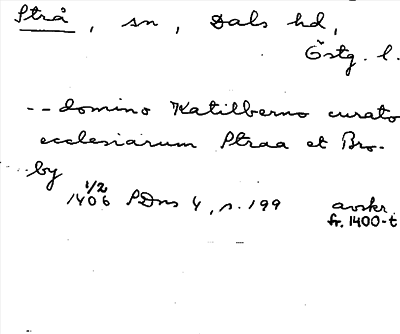 Strå, sn, Dals hd,
Östg. l.
-- domino Katilberno curato
ecclesiarum Straa et Bro-
by
1/2
1406 SDns 4, s. 199 avskr.
fr. 1400-t